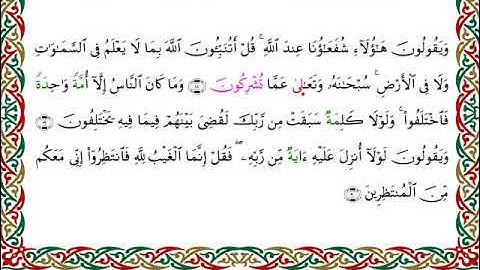 وَيَقُولُونَ هَٰٓؤُلَآءِ شُفَعَٰٓؤُنَا عِندَ ٱللَّهِ ۚ قُلْ أَتُنَبِّـُٔونَ ٱللَّهَ بِمَا لَا يَعْلَمُ فِى ٱلسَّمَٰوَٰتِ
وَلَا فِى ٱلْأَرْضِ ۚ سُبْحَٰنَهُۥ وَتَعَٰلَىٰ عَمَّا تُشْرِكُونَ وَمَا كَانَ ٱلنَّاسُ إِلَّآ أُمَّةً وَٰحِدَةً
فَٱخْتَلَفُوا۟ ۚ وَلَوْلَا كَلِمَةٌ سَبَقَتْ مِن رَّبِّكَ لَقُضِىَ بَيْنَهُمْ فِيمَا فِيهِ يَخْتَلِفُونَ
وَيَقُولُونَ لَوْلَآ أُنزِلَ عَلَيْهِ ءَايَةٌ مِّن رَّبِّهِۦ ۖ فَقُلْ إِنَّمَا ٱلْغَيْبُ لِلَّهِ فَٱنتَظِرُوٓا۟ إِنِّى مَعَكُم
مِّنَ ٱلْمُنتَظِرِينَ